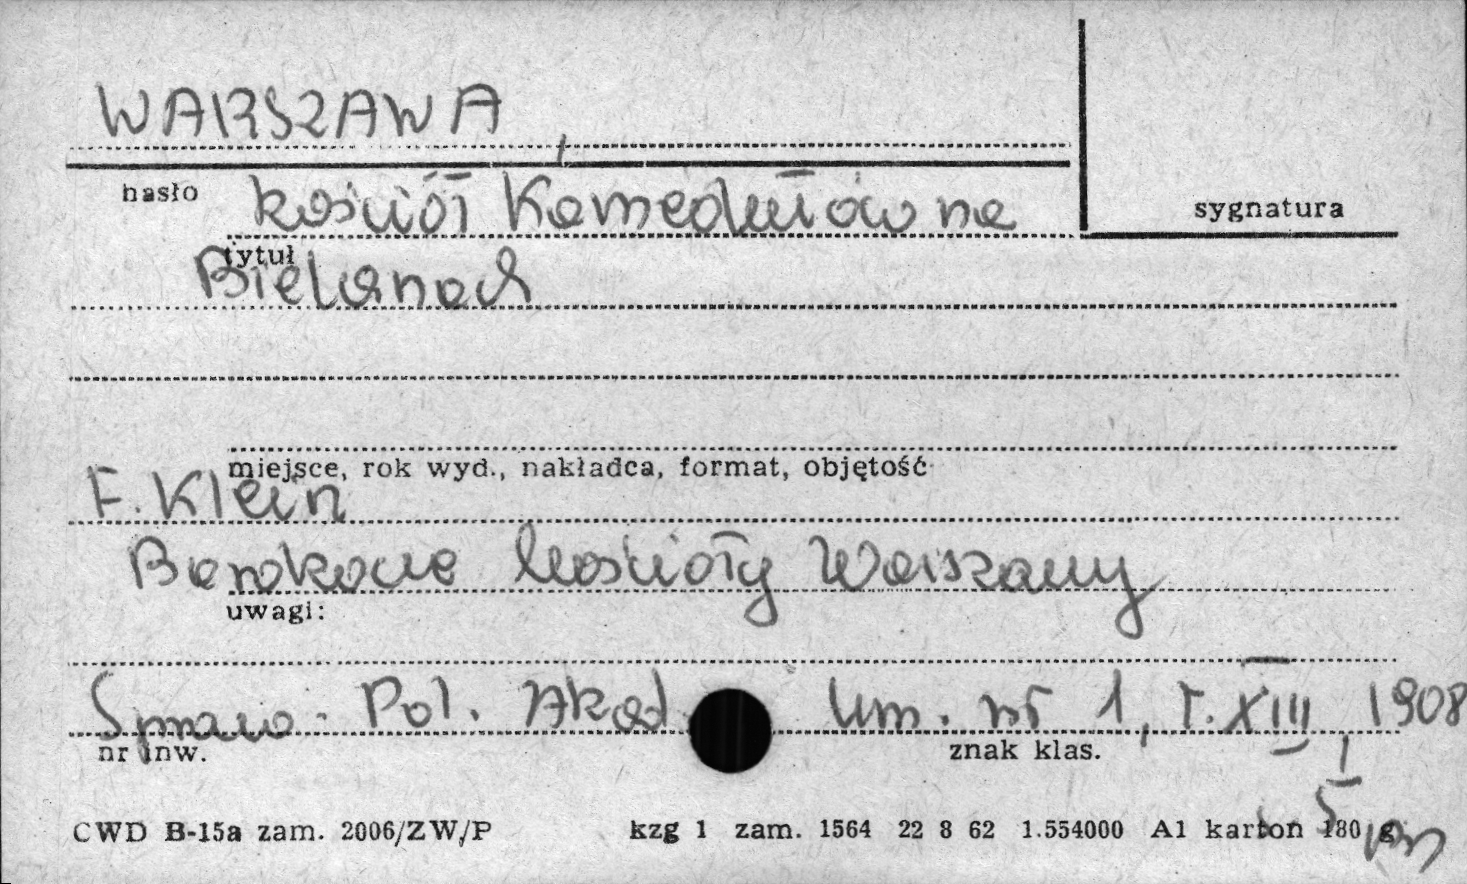 WARSZAWA,
hasło
kościół Kamedułów na
sygnatura
tytuł
Bielanach
miejsce, rok wyd., nakładca, format, objętość
F. Klein
Barokowe kościoły Warszawy
uwagi:
Spraw. Pol. Akad. Um. nr 1, T. XIII 1908
nr inw.
znak klas.
CWD B-15a zam. 2006/ZW/P kzg 1 zam. 1564 22 8 62 1.554000 A1 karton 180 g